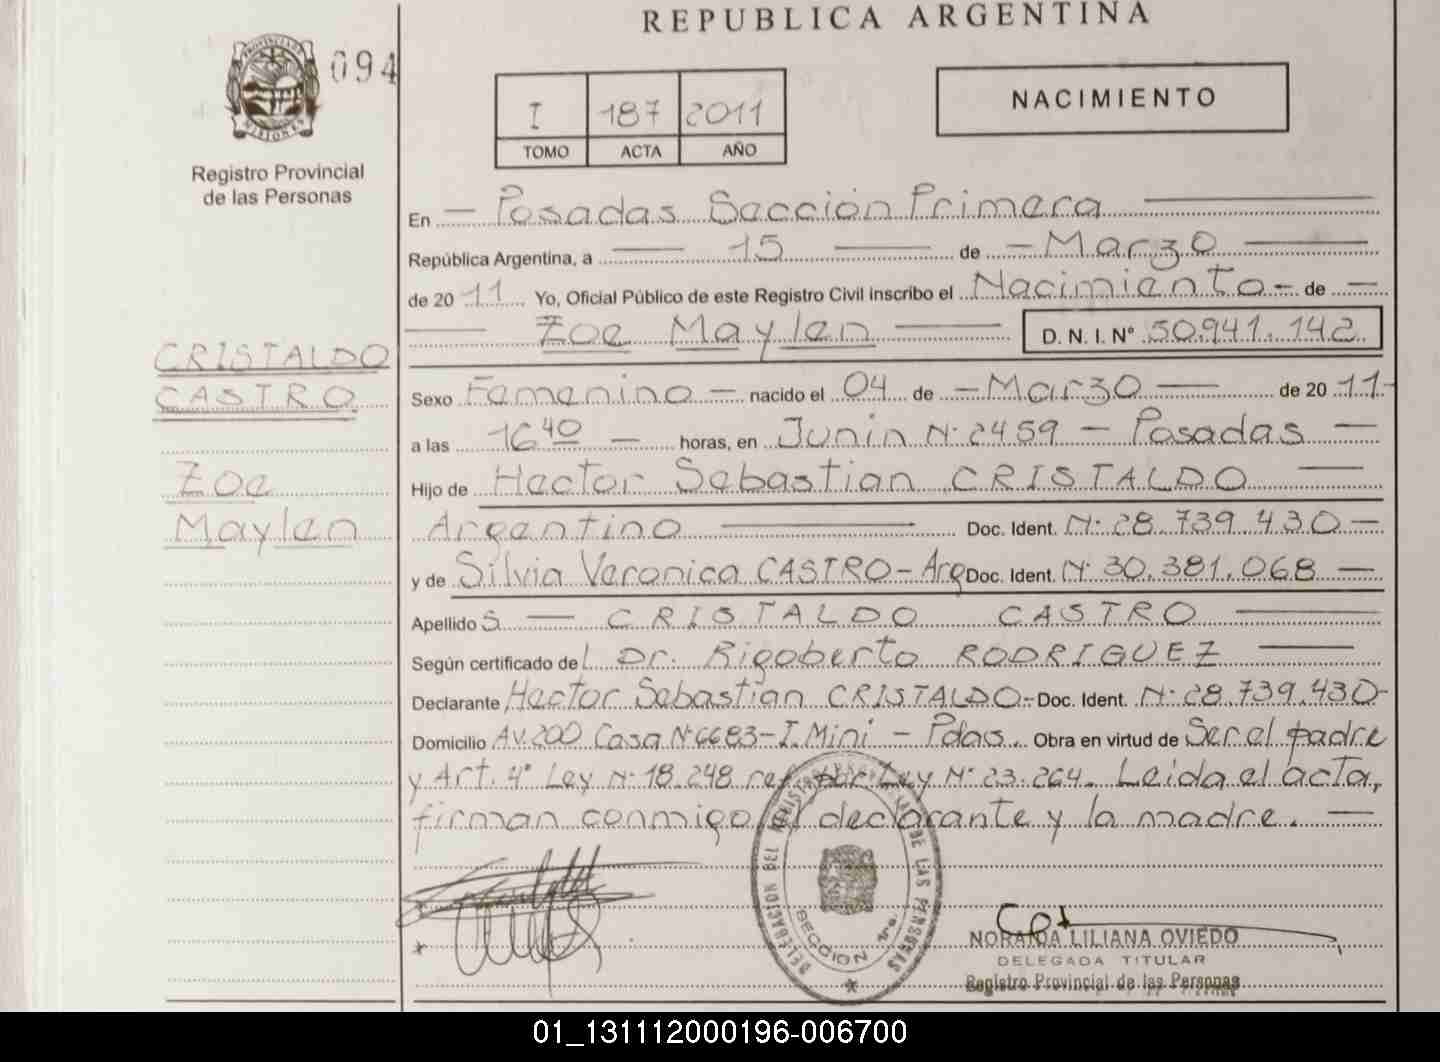 REPUBLICA ARGENTINA
094
I 187 2011
TOMO ACTA AÑO
NACIMIENTO
PROVINCIA DE
MISIONES
Registro Provincial
de las Personas
En — Posadas Sección Primera —
República Argentina, a — 15 — de — Marzo —
de 2011 Yo, Oficial Público de este Registro Civil inscribo el Nacimiento - de —
— Zoe Maylen — D. N. I. Nº 50.941.142
CRISTALDO
CASTRO
Zoe
Maylen
Sexo Femenino — nacido el 04 de — Marzo — de 2011-
a las 16 40 — horas, en Junín Nº 2459 — Posadas —
Hijo de Hector Sebastian CRISTALDO —
Argentino — Doc. Ident. Nº 28.739.430 —
y de Silvia Veronica CASTRO - Arg Doc. Ident. Nº 30.381.068 —
Apellidos — CRISTALDO CASTRO —
Según certificado del Dr. Rigoberto RODRIGUEZ —
Declarante Hector Sebastian CRISTALDO - Doc. Ident. Nº 28.739.430-
Domicilio AV.200 Casa Nº 6683 - I. Mini - Pdas. Obra en virtud de Ser el padre
y Art. 4º Ley Nº 18.248 ref por Ley Nº 23.264. Leida el acta,
firman conmigo el declarante y la madre. —
DELEGACION DEL REGISTRO PROVINCIAL DE LAS PERSONAS
SECCION 1ra.
NORAIDA LILIANA OVIEDO
DELEGADA TITULAR
Registro Provincial de las Personas
01_131112000196-006700